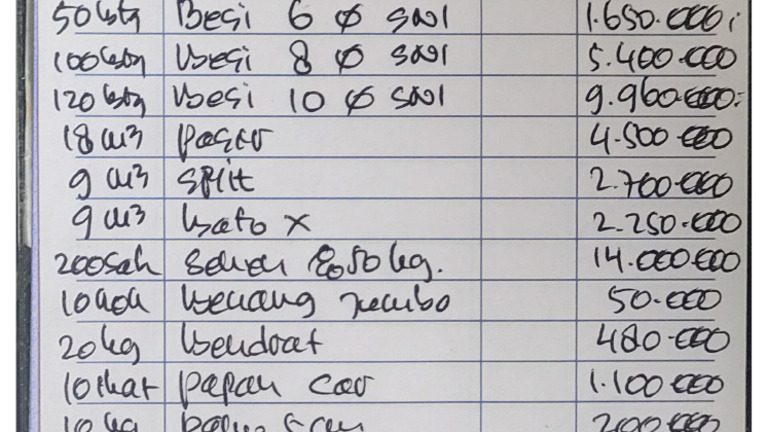 50 btg Besi 6 Ø SNI 1.650.000;
100 btg Besi 8 Ø SNI 5.400.000
120 btg Besi 10 Ø SNI 9.960.000:
18 m3 Pasir 4.500.000
9 m3 Split 2.700.000
9 m3 Bato X 2.250.000
200 Sak Semen @ 50 kg. 14.000.000
10 Benang Jumbo 50.000
20 kg Bendrat 480.000
10 Papan Cor 1.100.000
10 kg 200.000